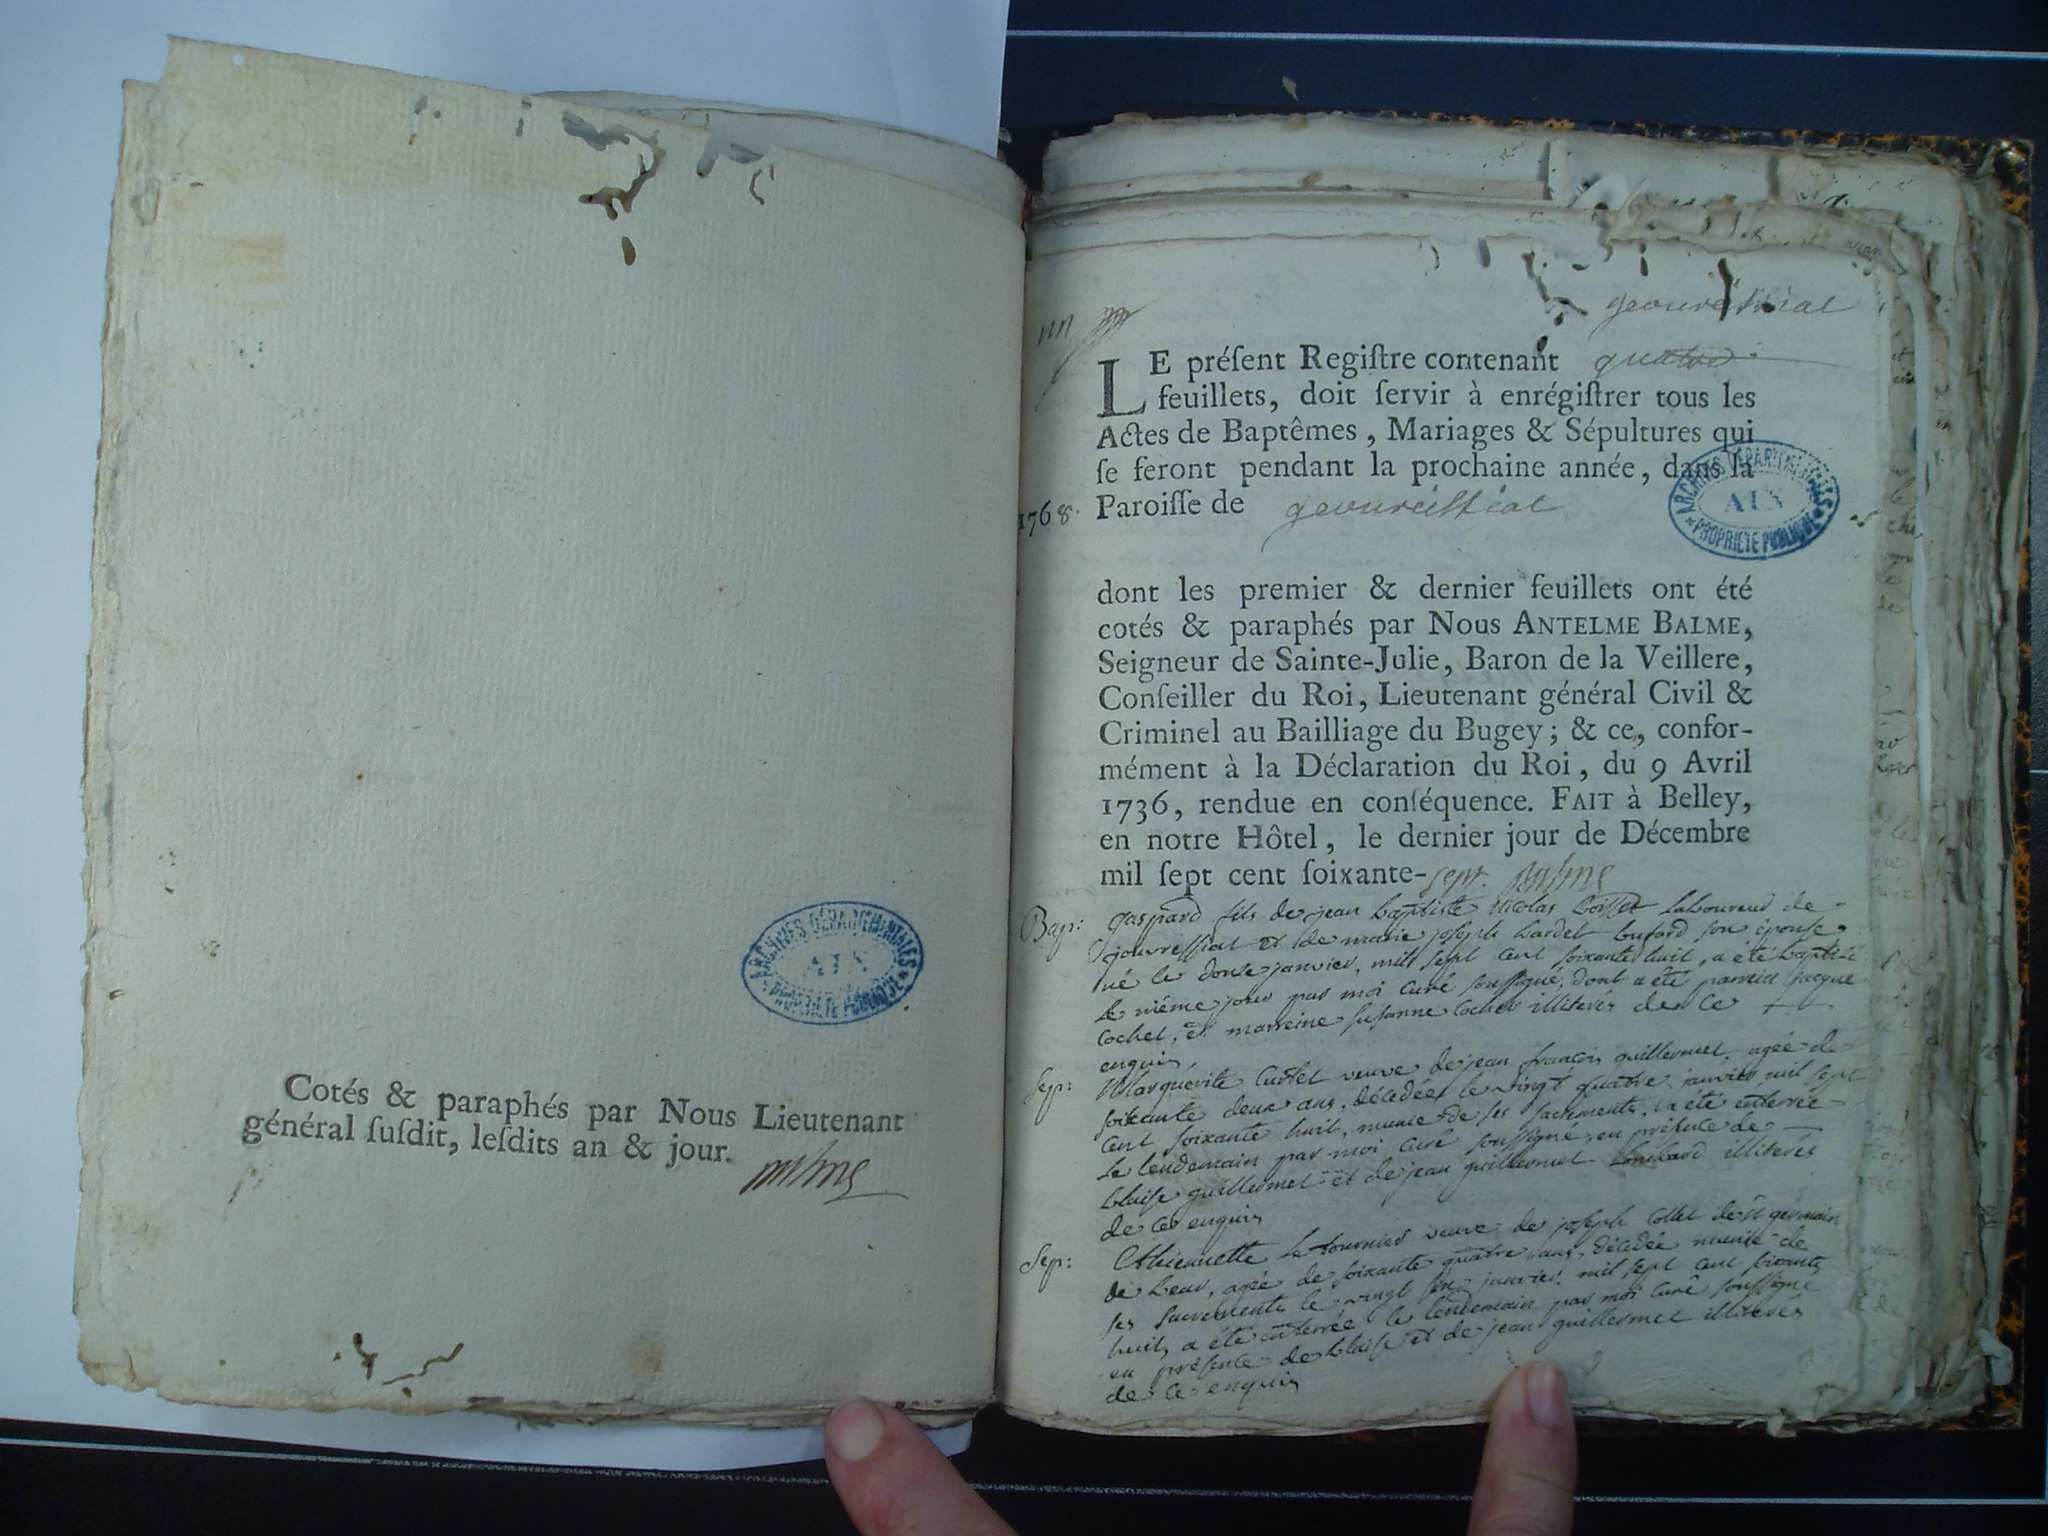 Cotés & paraphés par Nous Lieutenant
général ſuſdit, leſdits an & jour.
ARCHIVES DÉPARTEMENTALES
AIN
PROPRIÉTÉ PUBLIQUE
LE préſent Regiſtre contenant quatre
feuillets, doit ſervir à enrégiſtrer tous les
Actes de Baptêmes, Mariages & Sépultures qui
ſe feront pendant la prochaine année, dans la
Paroiſſe de
1768.
ARCHIVES DÉPARTEMENTALES
AIN
PROPRIÉTÉ PUBLIQUE
dont les premier & dernier feuillets ont été
cotés & paraphés par Nous ANTELME BALME,
Seigneur de Sainte-Julie, Baron de la Veillere,
Conſeiller du Roi, Lieutenant général Civil &
Criminel au Bailliage du Bugey; & ce, confor-
mément à la Déclaration du Roi, du 9 Avril
1736, rendue en conſéquence. FAIT à Belley,
en notre Hôtel, le dernier jour de Décembre
mil ſept cent ſoixante-sept.
Bap: gaspard fils de jean baptiste nicolas laboureur de
et de marie joseph son épouse
né le douse janvier, mil sept cent soixante huit, a été baptisé
le même jour par moi curé soussigné, dont a été parrein jacque
cochet, et marreine susanne cochet illiterés de ce
enquis
Sep: Marguerite veuve de jean françois guillermet, agée de
soixante deux ans, décédée le vingt quatre janvier mil sept
cent soixante huit, munie de ses sacrements, a été enterrée
le lendemain par moi curé soussigné, en présence de
blaise guillermet et de jean guillermet illiterés
de ce enquis
Sep: veuve de joseph collet de st germain
de agée de soixante quatre ans, décédée munie de
ses sacrements le vingt janvier, mil sept cent soixante
huit, a été enterrée le lendemain par moi curé soussigné
en présence de blaise et de jean guillermet illiterés
de ce enquis